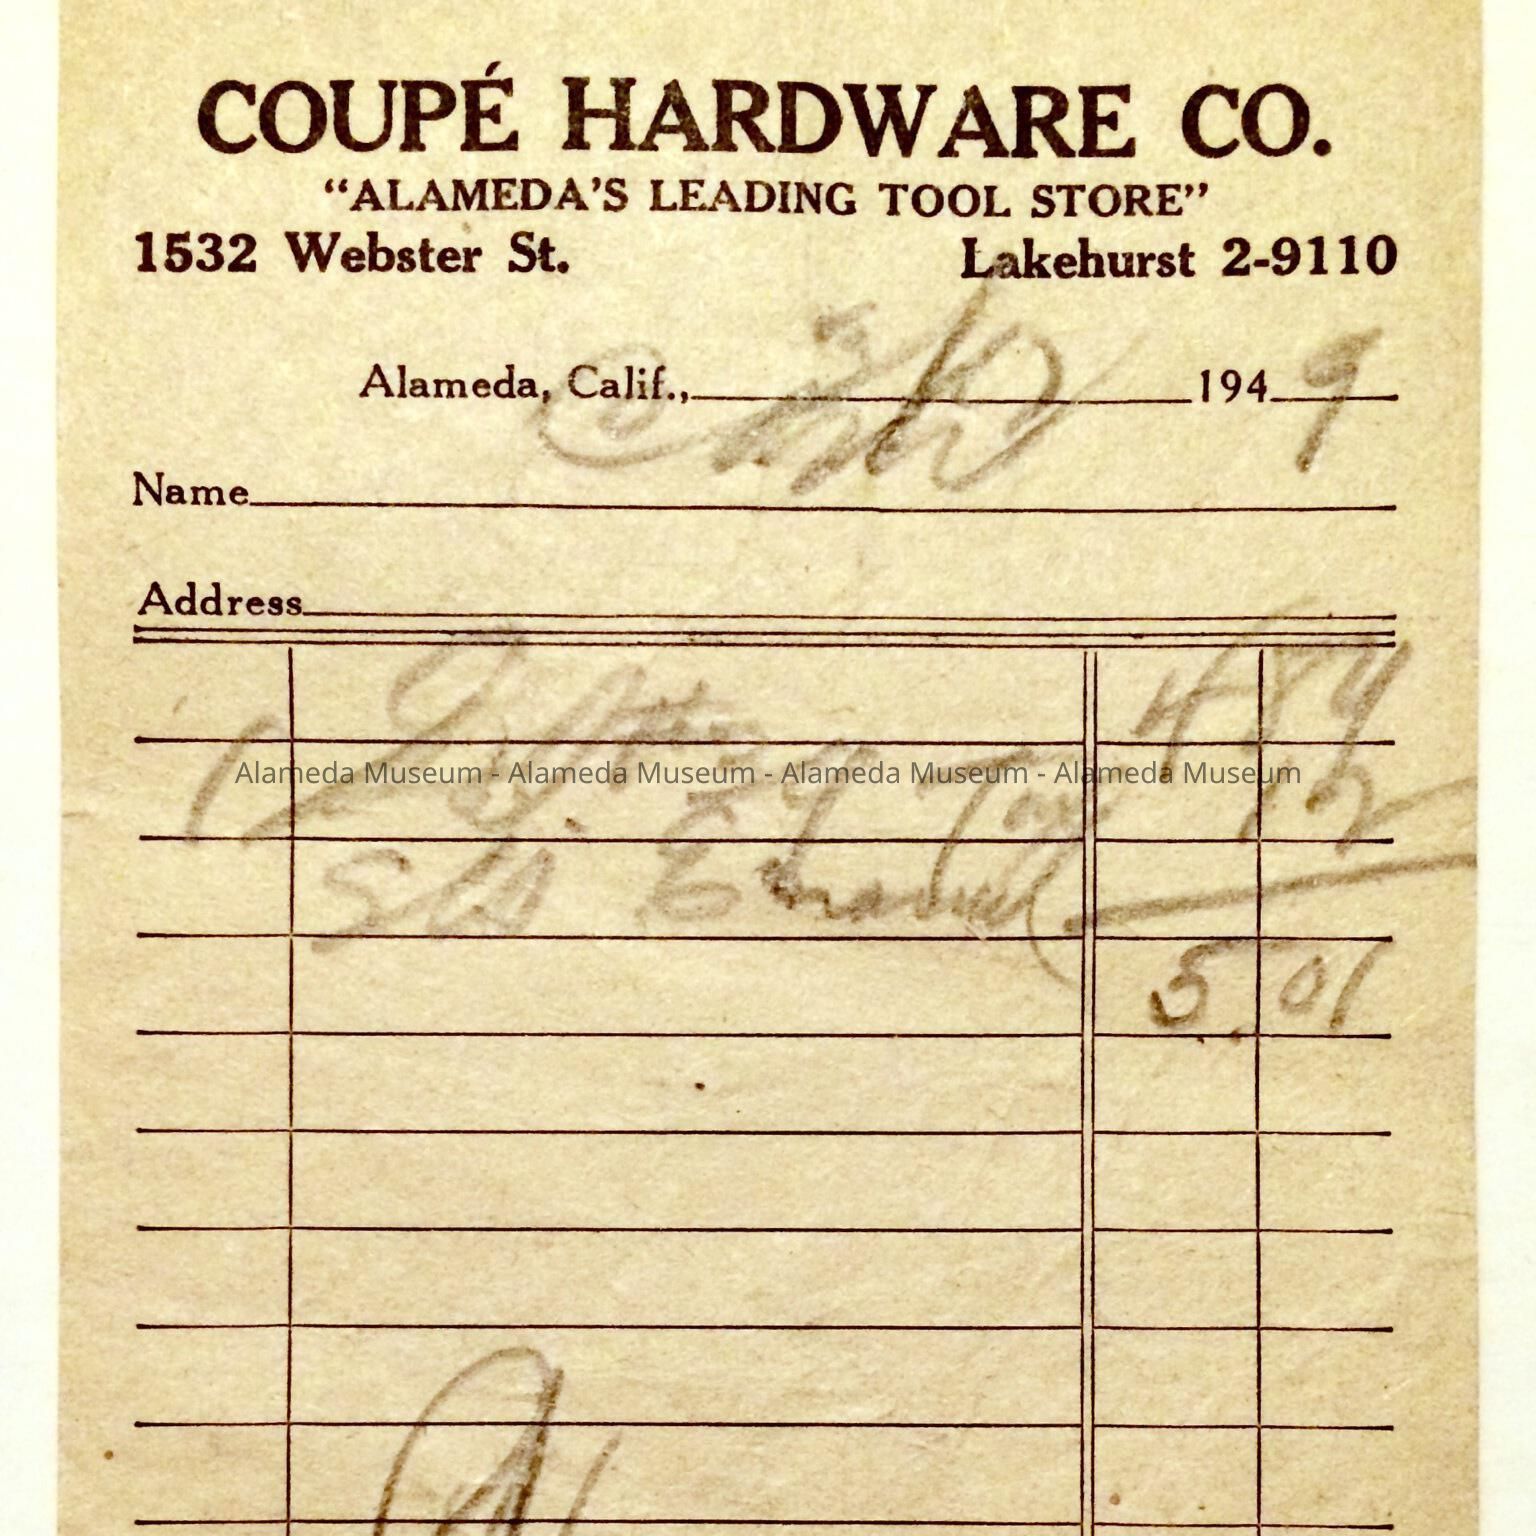 COUPÉ HARDWARE CO.
"ALAMEDA'S LEADING TOOL STORE"
1532 Webster St. Lakehurst 2-9110
Alameda, Calif., 194 9
Name Cash
Address
4 89
Alameda Museum - Alameda Museum - Alameda Museum - Alameda Museum
Tax 12
Enamel
5.01